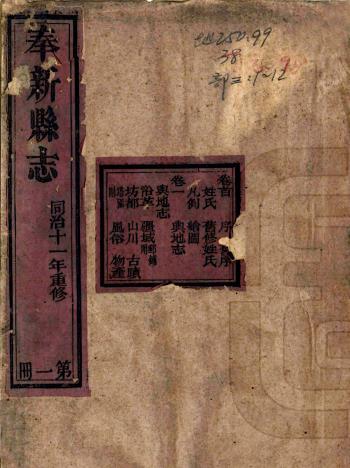 奉新縣志
同治十一年重修
第一冊
地250.99
38
部三:1~12
卷首
序
姓氏 舊修姓氏
凡例 繪圖
卷一 輿地志
輿地志
沿革 疆域
坊都 山川 古蹟
風俗 物產